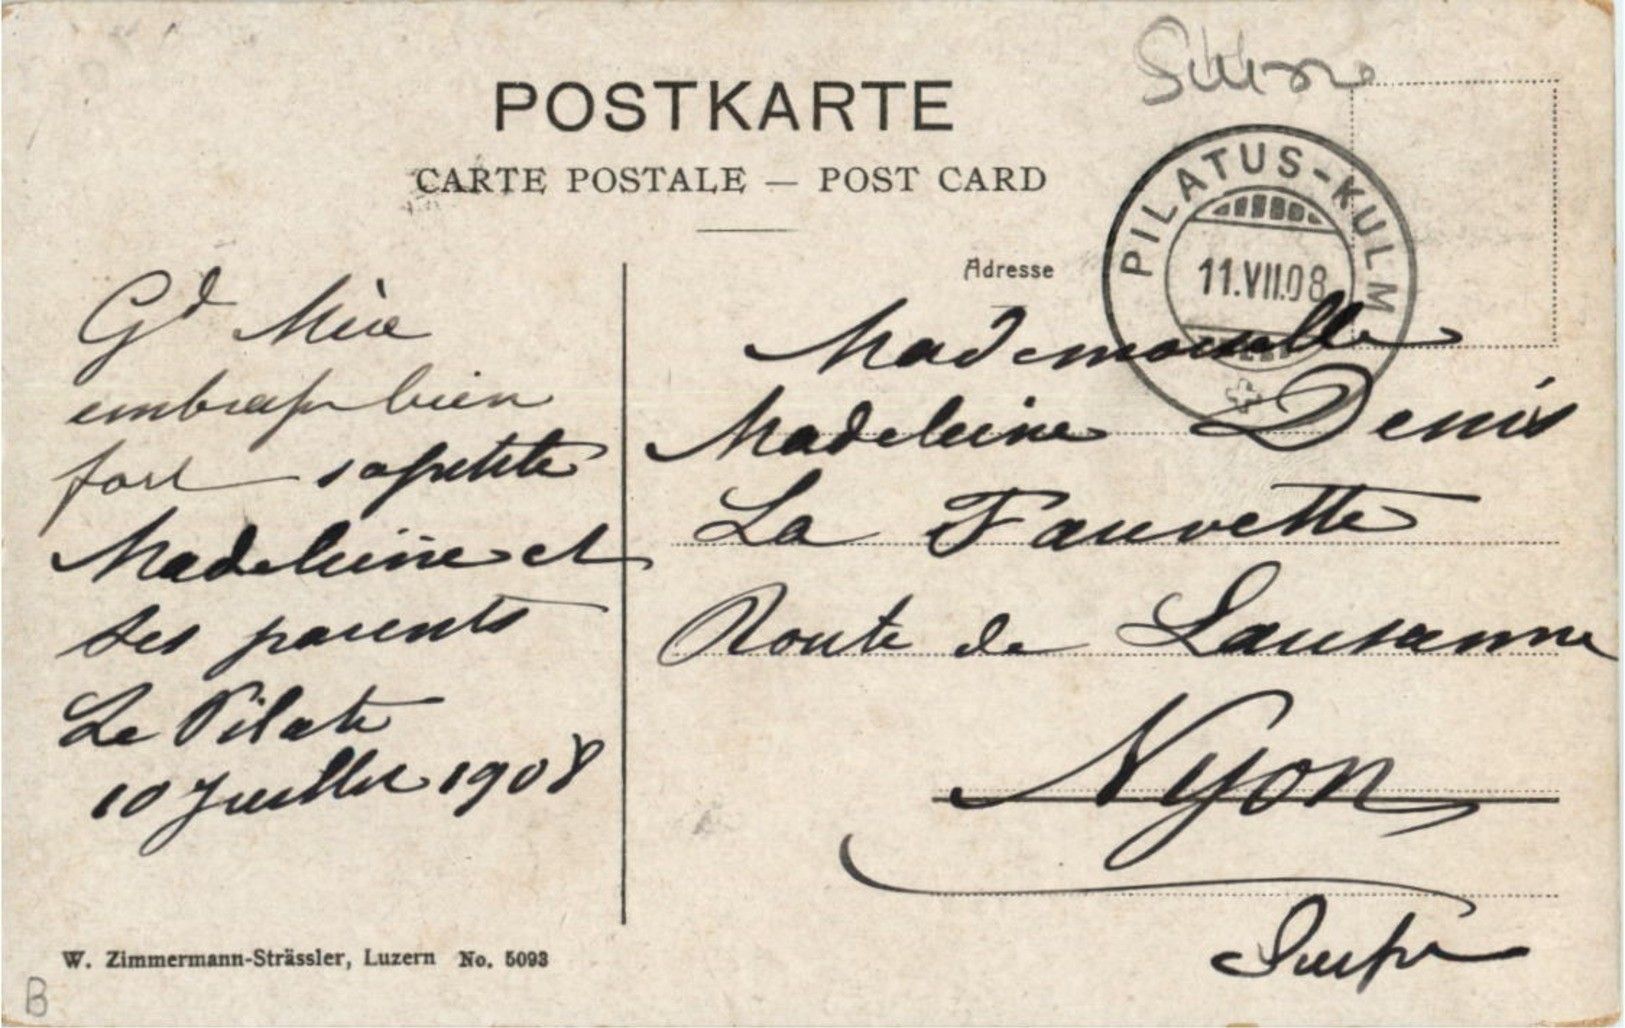 Suisse
POSTKARTE
CARTE POSTALE — POST CARD
PILATUS-KULM
11.VII.08
Adresse
Gd Mère
embrasse bien
fort sa petite
Madeleine et
ses parents
Le Pilate
10 Juillet 1908
Mademoiselle
Madeleine Denis
La Fauvette
Route de Lausanne
Nyon
Suisse
W. Zimmermann-Strässler, Luzern No. 5093
B